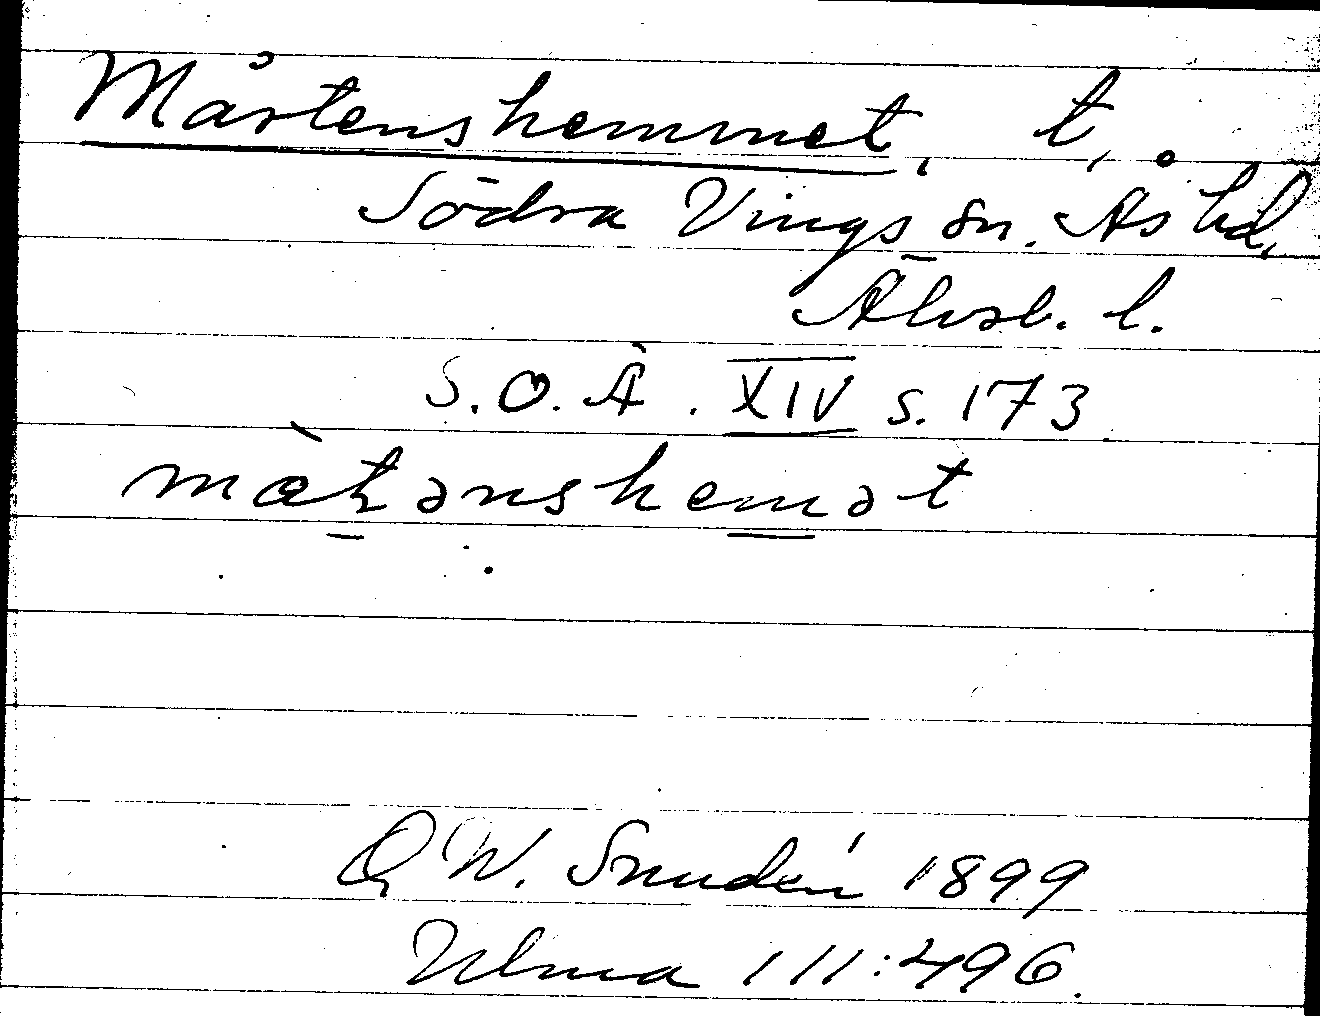 Mårtenshemmet, t,
Södra Vings sn. Ås hd,
Älvsb. l.
S.O.Ä. XIV s. 173
mætənshemət
W. Sundén 1899
Ulma 111:496.